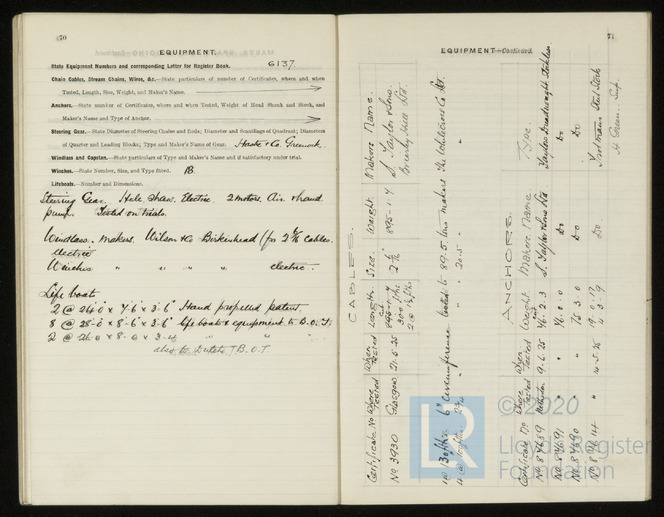 70
EQUIPMENT.
State Equipment Numbers and corresponding Letter for Register Book. 6137.
Chain Cables, Stream Chains, Wires, &c.—State particulars of number of Certificates, where and when
Tested, Length, Size, Weight, and Maker's Name.
Anchors.—State number of Certificates, where and when Tested, Weight of Head Shank and Stock, and
Maker's Name and Type of Anchor.
Steering Gear.—State Diameter of Steering Chains and Rods; Diameter and Scantlings of Quadrant; Diameters
of Quarter and Leading Blocks; Type and Maker's Name of Gear. Hastie & Co. Greenock.
Windlass and Capstan.—State particulars of Type and Maker's Name and if satisfactory under trial.
Winches.—State Number, Size, and Type fitted.
Lifeboats.—Number and Dimensions.
Steering Gear. Hele Shaw. Electric. 2 motors. Air & hand
pump. Tested on trials.
Windlass. Makers. Wilson & Co Birkenhead (for 2 cables.
electric
Winches " " " " electric.
Life boats
2 @ 26'.0" x 7'.6" x 3'.6" Hand propelled patent.
8 @ 28'.0" x 8'.6" x 3'.6" life boats & equipment to B.O.T.
2 @ 26.0 x 8.0 x " "
also to Dutch T B.O.T
71
EQUIPMENT—Continued.
CABLES.
Certificate No Where Tested When Tested Length Size. Weight. Makers Name.
No 3930 Glasgow 21.5.25 S. Taylor & Sons.
Brierley Hill Ltd.
6" circumference tested to 89.5 tons makers The
" " 20.5 " "
ANCHORS.
Certificate No Where Tested When Tested Weight Makers Name Type
No 84689 9.6.25 76.2.3 S. Taylor & Sons Ltd Taylors Dreadnought Stockless
No 84691 " " 76.0.0 Do Do
No 84690 " " 75.3.0 Do Do
" 14.5.25 Do
© 2020
Lloyd's Register
Foundation
LR